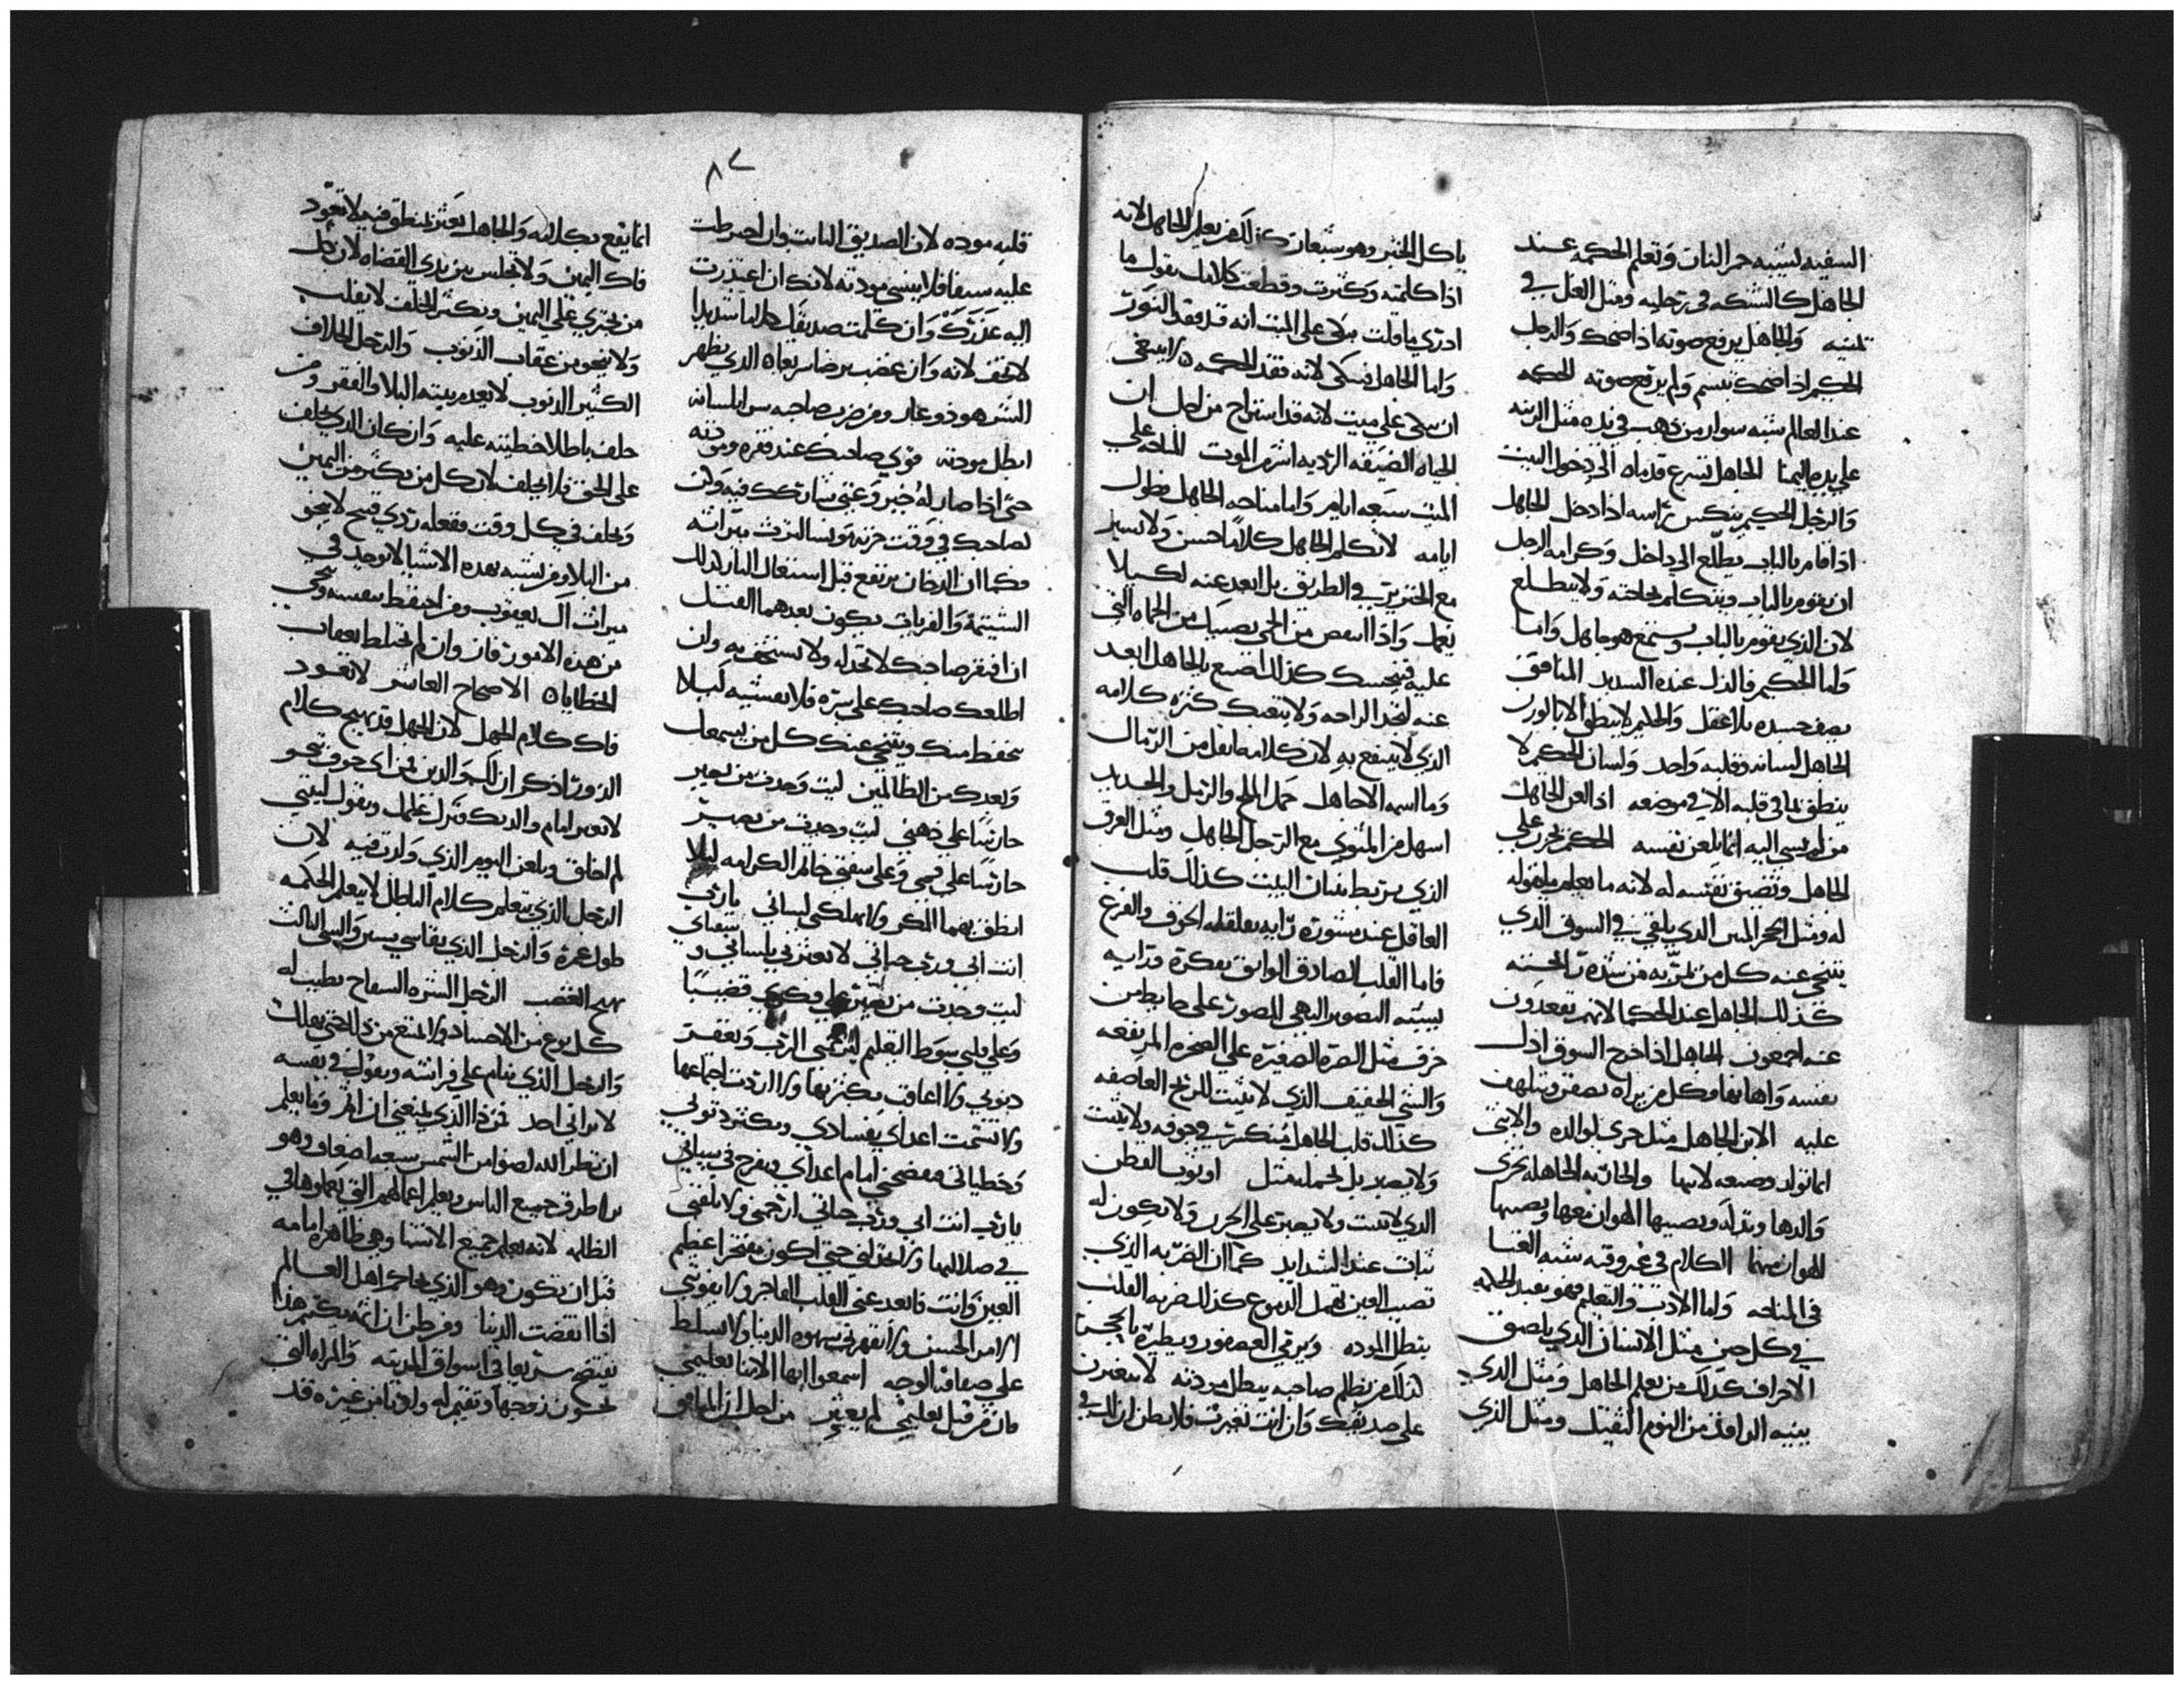 السفيه تشبه جمر النار وتعلم الحكمه عند
الجاهل كالشبكه في رجليه ومثل الغل في
يمينه والجاهل يرفع صوته اذا ضحك والرجل
الحكيم اذا ضحك تبسم ولم يرفع صوته الحكمه
عند العالم شبه سوار من ذهب في يده مثل الزينه
علي يده اليمنا الجاهل تسرع قدماه الي دخول البيت
والرجل الحكيم ينكس راسه اذا دخل الجاهل
اذا قام بالباب يطلع الي داخل وكرامه الرجل
ان يقوم بالباب ويتكلم بحاجته ولا يتطلع
لان الذي يقوم بالباب ويستمع هو جاهل واما
واما الحكيم فالذل عنده الشديد المنافق
يصف جسده بلا عقل والحليم لا ينطق الا بالوزن
الجاهل لسانه وقلبه واحد ولسان الحكيم لا
ينطق بما في قلبه الا في موضعه اذا لعن الجاهل
من لم يسي اليه انما يلعن نفسه الحكيم يحزن علي
الجاهل وتضيق نفسه له لانه ما يعلم ما يقوله
له ومثل الحجر المنتن الذي يلقي في السوق الذي
يتنحي عنه كل من يمر به من شدة رايحته
كذلك الجاهل عند الحكما لانهم يبعدون
عنه اجمعون الجاهل اذا خرج الي السوق اذل
نفسه واهانها وكل من يراه يصفر ويتلهف
عليه الابن الجاهل مثل خزي لوالده والابنه
انما تولد وضيعه لابيها والجاريه الجاهله تخزي
والدها وتذله ويصيبها الهوان بعلها ويصيبها
الهوان منهما الكلام في غير وقته شبه الغنا
في المناحه واما الادب والتعليم فهو يفيد الحكمه
في كل حين مثل الانسان الذي يلصق
الاخزاف كذلك من يعلم الجاهل ومثل الذي
ينبه الراقد من النوم الثقيل ومثل الذي
ياكل الخبز وهو شبعان كذلك من يعلم الجاهل لانه
اذا كلمته وكثرت وقطعت كلامك يقول ما
ادري ما قلت بكي علي الميت انه قد فقد النور
واما الجاهل فيبكي لانه فقد الحكمه لا ينبغي
ان يبكي علي ميت لانه قد استراح من اجل ان
الحياه الضيقه الرديه اشر من الموت المناحه علي
الميت سبعه ايام واما مناحه الجاهل فطول
ايامه لا تكلم الجاهل كلاما حسن ولا تسير
مع الخنزير في الطريق بل ابعد عنه لكيلا
يعمك واذا انتفض من الحمي يصيبك من الحماه التي
عليه فينجسك كذلك اصنع بالجاهل ابعد
عنه لتجد الراحه ولا يتعبك كثره كلامه
الذي لا ينتفع به لان كلامه اثقل من الرمال
وما اسمه الا جاهل حمل الملح والرمل والحديد
اسهل من المثوي مع الرجل الجاهل ومثل العرق
الذي يرتبط ببنيان البيت كذلك قلب
العاقل عند مشورة رايه يقلقله الخوف والفزع
فاما القلب الصادق الواثق بفكرة ورايه
يشبه التصوير البهي المصور علي حايط من
خزف مثل الصره الصغيره علي الصخره المرتفعه
والشي الخفيف الذي لا يثبت للريح العاصفه
كذلك قلب الجاهل منكسر في جوفه ولا يثبت
ولا يصبر بل لحمله مثل اوثوب القطن
الذي لا يثبت ولا يصبر علي الحرر ولا يكون له
ثبات عند الشدايد كما ان الضربه الذي
تصيب العين تهمل الدموع كذلك ضربه القلب
تبطل الموده ومن يرمي العصفور ويطيره بالحجر
كذلك من يظلم صاحبه يبطل مودته لا يتغيرن
علي صديقك وان انت تغيرت فلا تظن ان لك في
٨٧
قلبه موده لان الصديق الثابت وان اخترطت
عليه سيفا فلا ينسي مودته لانك ان اعتذرت
اليه عذرك وان كلمت صديقك كلاما شديدا
لا تخف لانه وان غضب يرضا سريعا الذي يظهر
السر هو ذو عار ومن ضرب صاحبه سرا بلسانه
ابطل مودته قوي صاحبك عند فقره وموته
حتي اذا صار له خير وغني تشاركه فيه وكن
لصاحبك في وقت حزنه مونسا لترث ميراثه
فكما ان الدخان يرتفع قبل اشتعال النار كذلك
الشتيمه والفريات يكون بعدهما القتل
ان افتقر صاحبك لا تخذله ولا تستخف به وان
اطلعك صاحبك علي سره فلا تفشيه لكيلا
يتحفظ منك ويتنحي عنك كل من يسمعك
ويعدك من الظالمين ليت وجدت من يصير
حارسا علي ذهني ليت وجدت من يصير
حارسا علي فمي وعلي شفتي خاتم الكرامه ليلا
انطق بهما المكر ولا يهلكني لساني يا رب
انت ابي ورب حياتي لا تعثرني بلساني وشفتاي
ليت وجدت من يصير علي فكري قضيبا
وعلي قلبي سوط التعليم ليرحمني الرب ويغفر
ذنوبي ولا اعاقب بكثرتها ولا ازدت اجماعها
ولا تشمت اعداي بفسادي وبكثره ذنوبي
وخطياتي فتفضحني امام اعداي ويفرح في شبابي
يا رب انت ابي ورب حياتي ارحمني ولا تلقيني
في ضلالتها ولا تخذلني حتي اكون مفتخرا عظيم
العين وانت فابعد عني القلب الفاجر ولا يغويني
الامر الخسيس ولا تقهرني شهوه الدنيا ولا تسلط
علي صفاقه الوجه اسمعوا ايها الابنا تعليمي
فان من قبل تعليمي لم يعثر من اجل ان المنافق
انما يقع بكلامه والجاهل يعثر بمنطق فيه لا تعود
فاك اليمين ولا تجلس بين يدي القضاه لان كل
من يجتري علي اليمين ويكثر الحلف لا يفلت
ولا ينجو من عقاب الذنوب والرجل الحلاف
الكثير الذنوب لا يعدم بيته البلا والفقر ومن
حلف باطلا خطيته عليه وان كان الذي يحلف
علي الحق فلا يحلف لان كل من يكثر من اليمين
ويحلف في كل وقت ففعله ردي قبيح لا ينجو
من البلا ومن يشبه بهذه الاشيا لا توجد في
ميراث آل يعقوب ومن احتفظ بنفسه ونحي
من هذه الامور فاز وان لم تختلط بعقاب
الخطاياه الاصحاح العاشر لا تعود
فاك كلام الجهل لان الجهل قد يهيج كلام
الزور اذكر ان لك اب والدين من اي جوف تحو
لا تعير امام والديك وتزل عقلك وتقول ليتني
لم اخلق وتلعن اليوم الذي ولدت فيه لان
الرجل الذي يتعلم كلام الباطل لا يتعلم الحكمه
طول عمره والرجل الذي يقاسي يسير والشي الثالث
يهيج الغضب الرجل الشره السفاح يطيب له
كل نوع من الاجساد ولا يمتنع من ذلك حتي يهلك
والرجل الذي ينام علي فراشه ويقول في نفسه
لا يراني احد فمن ذا الذي يمنعني ان اثم وما يعلم
ان نظر الله اضوا من الشمس سبعه اضعاف وهو
يرا طرق جميع الناس ويعلم اعمالهم التي يعملوها في
الظلمه لانه يعلم جميع الاشيا وهي ظاهره امامه
قبل ان تكون وهو الذي يحاكم اهل العالم
اذا انقضت الدنيا ومن ظن ان اثمه يكتم هذا
يفتضح سريعا في اسواق المدينه والمراه التي
تخون زوجها وتقيم له ولدا من غيره قد